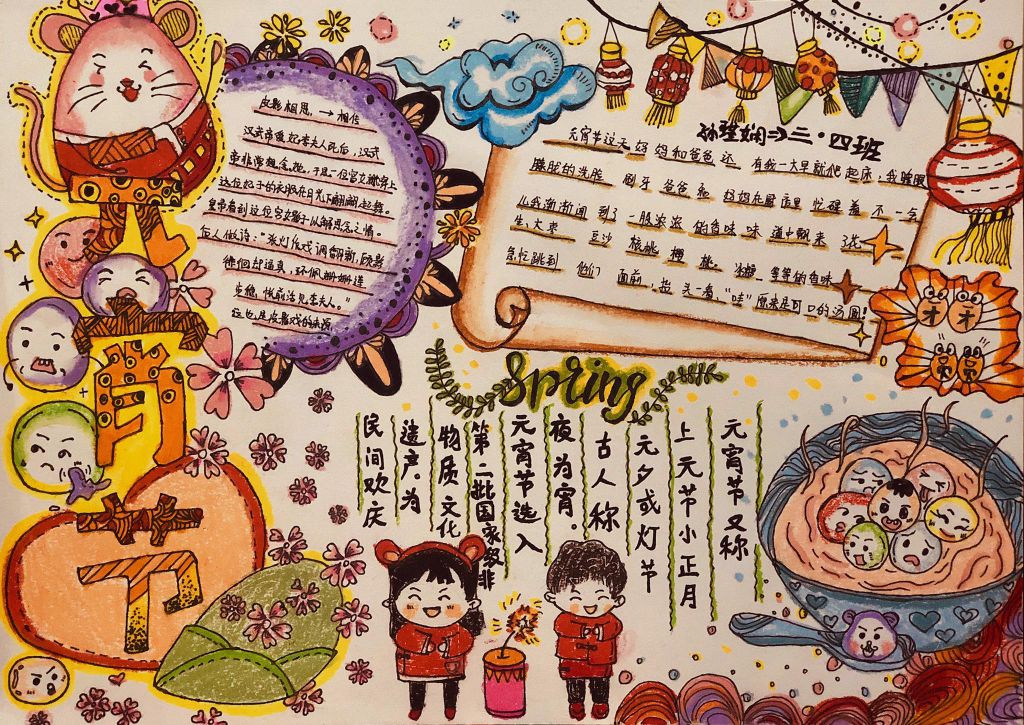 元
宵
节
皮影相思 → 相传
汉武帝爱妃李夫人死后，汉武
帝非常想念她，于是一位宫女就穿上
这位妃子的衣服在月光下翩翩起舞。
皇帝看到这位宫女暂于以解思念之情。
后人做诗："张灯作戏调翻新，顾影
徘徊却逼真，环佩珊珊连
步稳，帐前活见李夫人。"
这也是皮影戏的来源
三·四班
元宵节这天 妈妈和爸爸还 有我一大早就爬起床，我睡眼
朦胧的洗脸 刷牙 爸爸和 妈妈在厨房里 忙碌着 不一会
儿我渐渐闻 到了 一股浓浓 的香味 味 道中飘来 了花
生、大枣 豆沙 核桃 樱桃、冰糖 等等的香味
急忙跳到 他们 面前，抬头一看，"哇"原来是可口的汤圆！
Spring
元宵节又称
上元节小正月
元夕或灯节
古人称
夜为宵。
元宵节选入
第二批国家级非
物质文化
遗产。为
民间欢庆